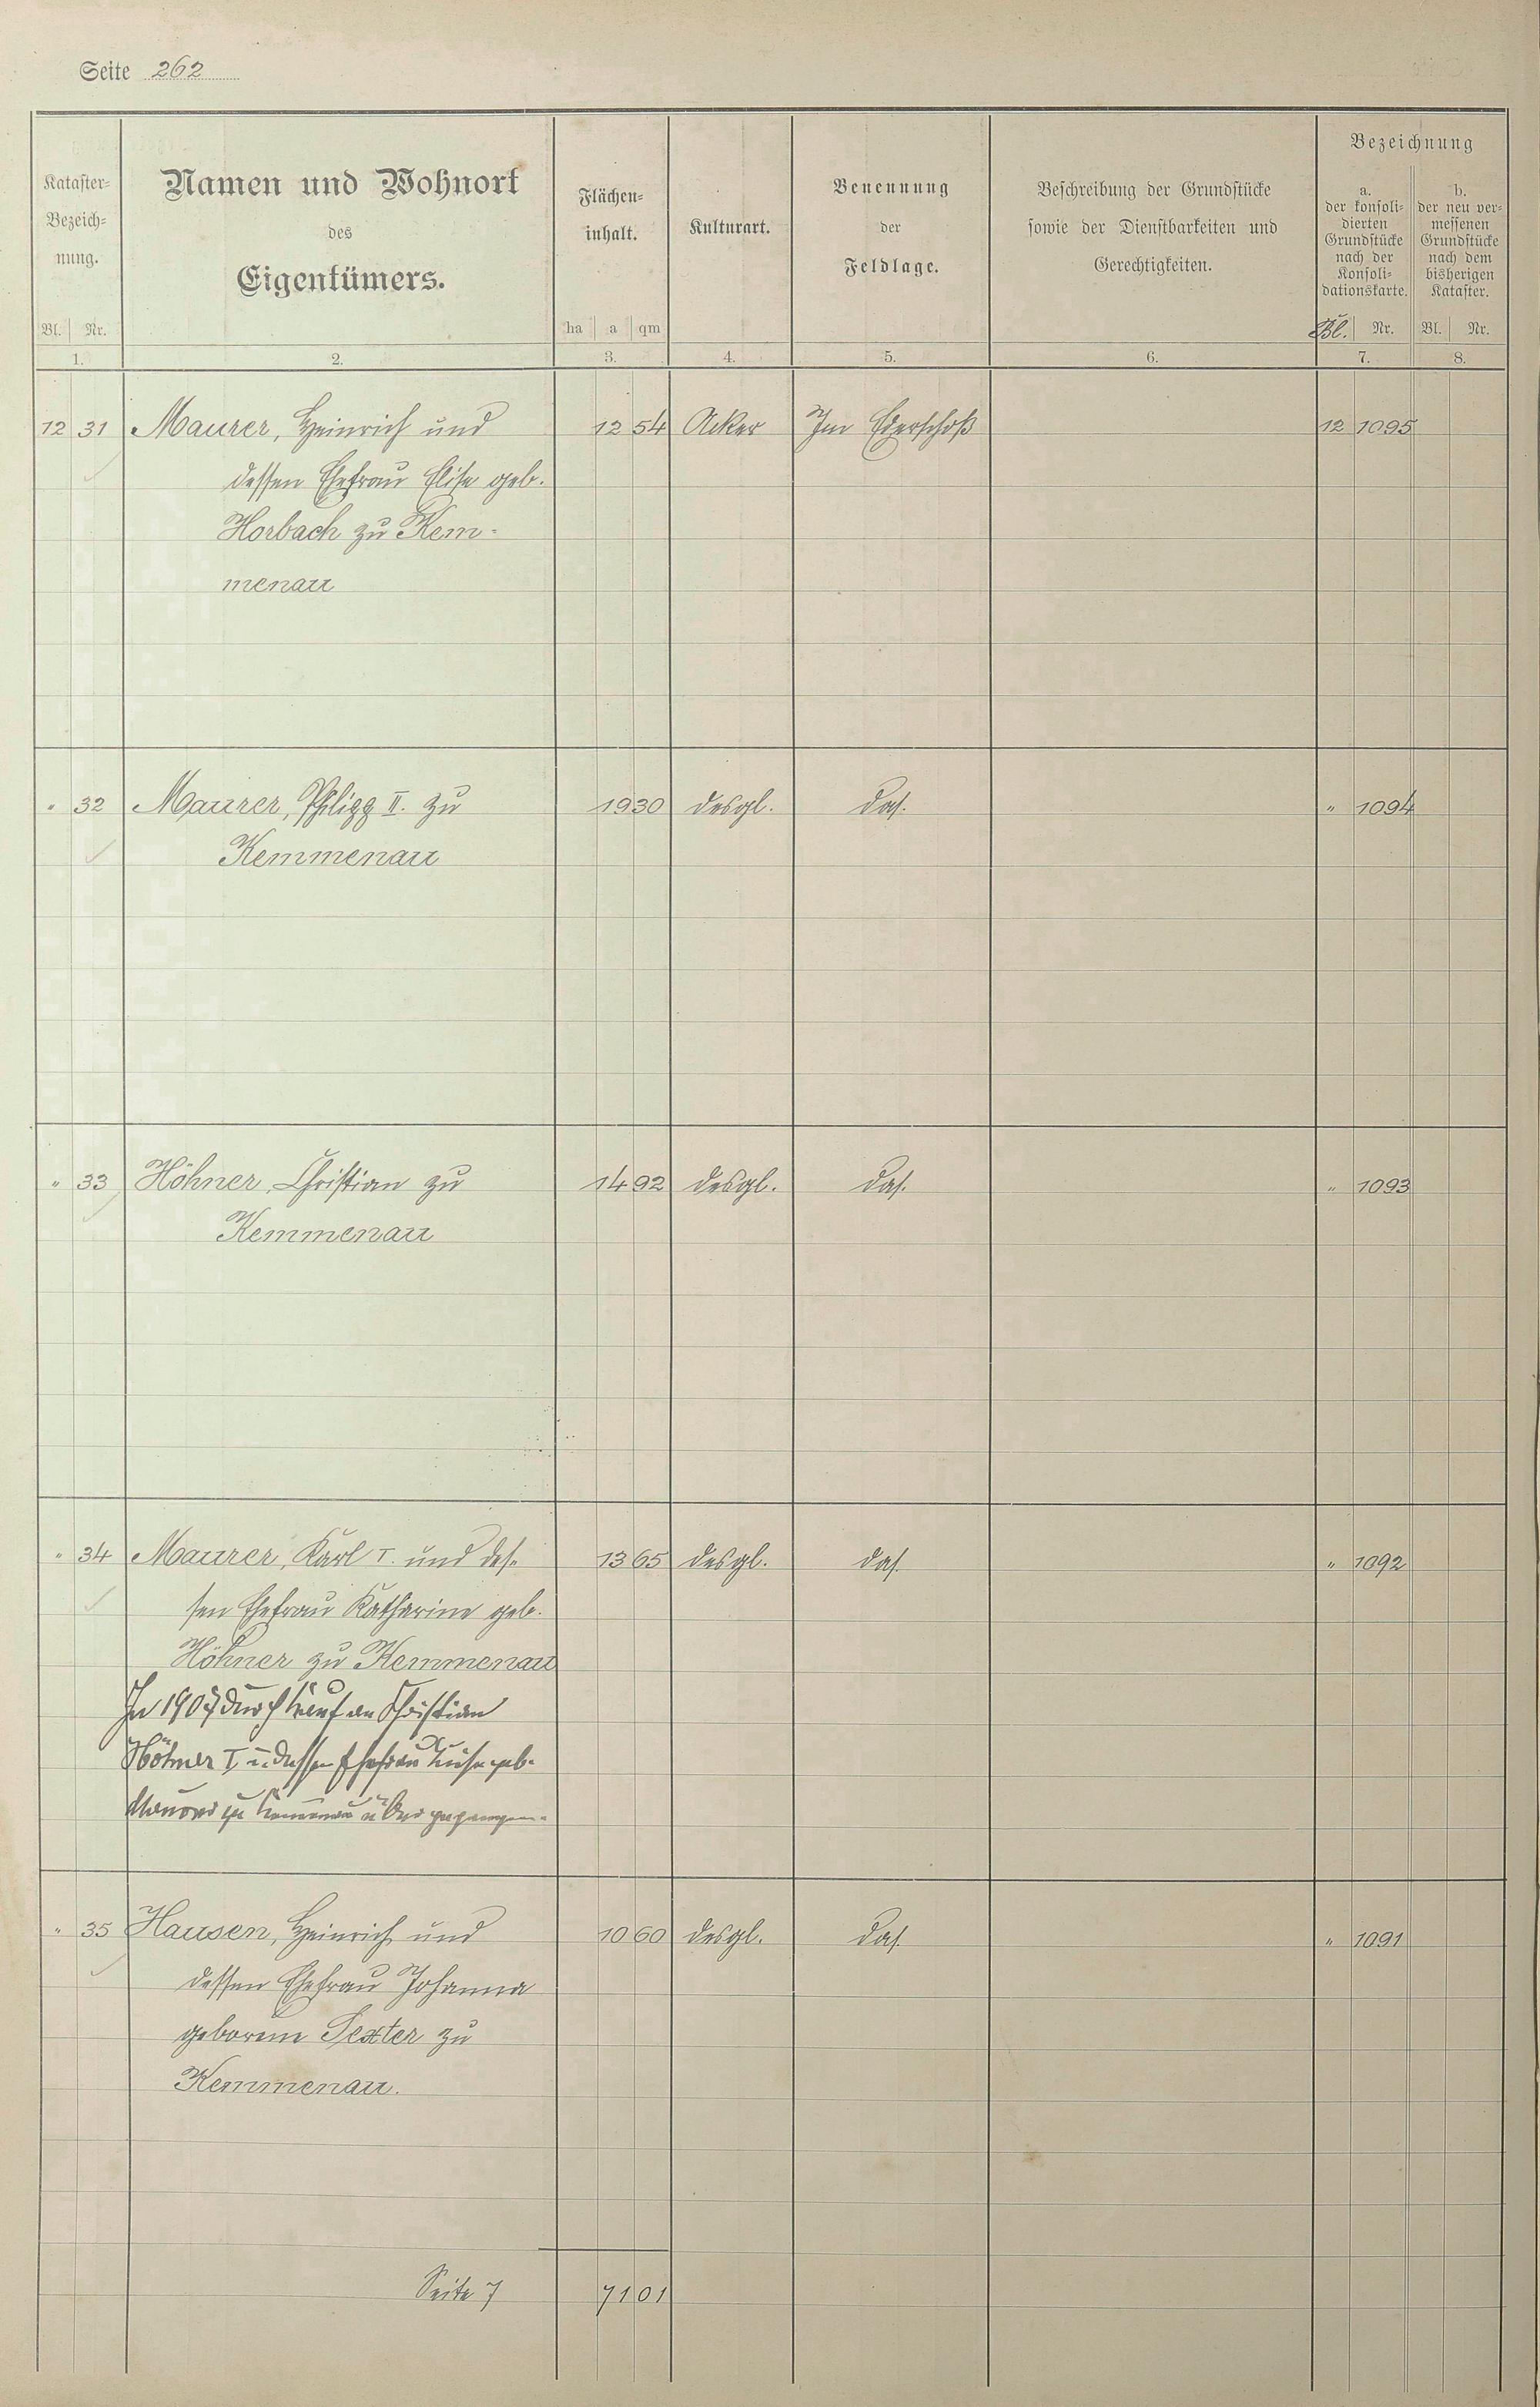 Seite 262
Kataster-
Bezeich-
nung.
Bl. Nr.
1.
Namen und Wohnort
des
Eigentümers.
2.
Flächen-
inhalt.
ha a qm
3.
Kulturart.
4.
Benennung
der
Feldlage.
5.
Beschreibung der Grundstücke
sowie der Dienstbarkeiten und
Gerechtigkeiten.
6.
Bezeichnung
a.
der konsoli-
dierten
Grundstücke
nach der
Konsoli-
dationskarte.
Bl. Nr.
7.
b.
der neu ver-
messenen
Grundstücke
nach dem
bisherigen
Kataster.
Bl. Nr.
8.
12 31 Maurer, Heinrich und 12 54 Acker Im 12 1095
dessen Ehefrau Elise geb.
Horbach zu Kem-
menau
" 32 Maurer, Philipp II. zu 19 30 desgl. das. " 1094
Kemmenau
" 33 Höhner, Christian zu 14 92 desgl. das. " 1093
Kemmenau
" 34 Maurer, Karl I. und des- 13 65 desgl. das. " 1092
sen Ehefrau Katharine geb.
Höhner zu Kemmenau
In 1907 durch Kauf an Christian
Höhner I, u. dessen Ehefrau Luise geb.
Maurer zu Kemmenau übergegangen.
" 35 Hausen, Heinrich und 10 60 desgl. das. " 1091
dessen Ehefrau Johanna
geborene Sexter zu
Kemmenau.
Seite 71 01